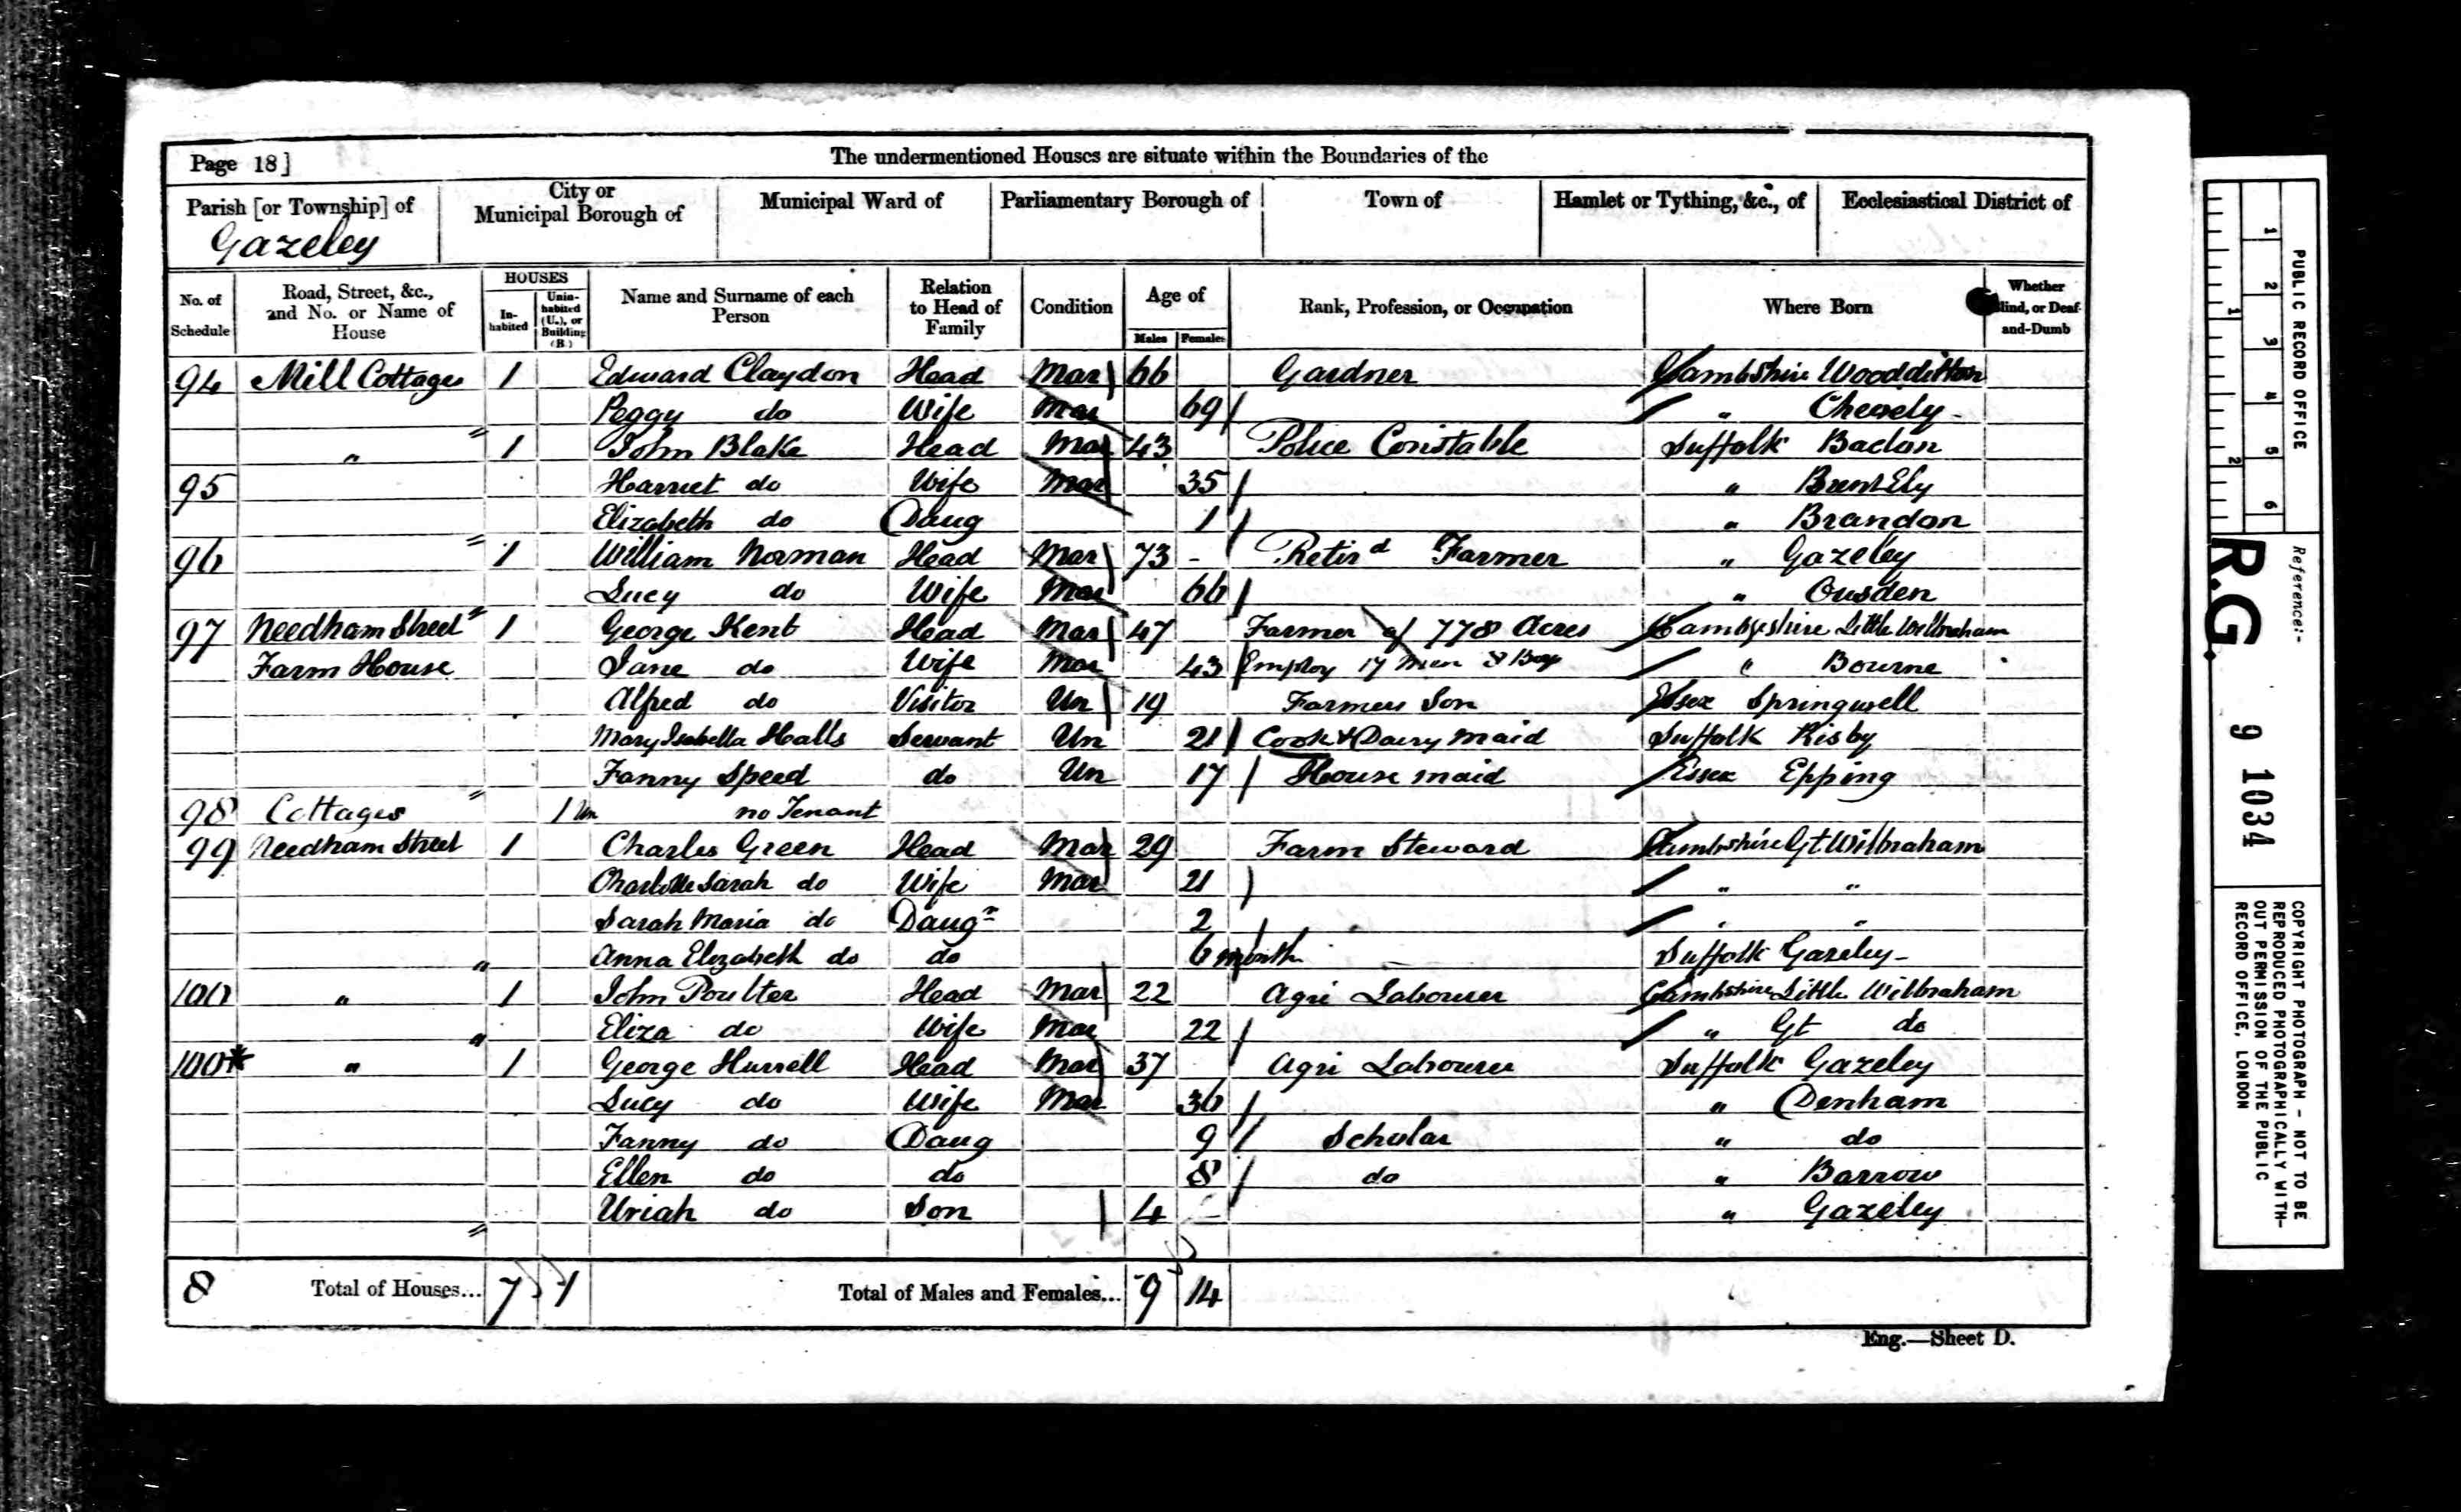 Page 18]
The undermentioned Houses are situate within the Boundaries of the
Parish [or Township] of
Gazeley
City or
Municipal Borough of
Municipal Ward of
Parliamentary Borough of
Town of
Hamlet or Tything, &c., of
Ecclesiastical District of
No. of Schedule
Road, Street, &c., and No. or Name of House
HOUSES
In-habited
Unin-habited (U.), or Building (B.)
Name and Surname of each Person
Relation to Head of Family
Condition
Age of
Males Females
Rank, Profession, or Occupation
Where Born
Whether Blind, or Deaf-and-Dumb
94 Mill Cottages 1 Edward Claydon Head Mar 66 Gardner Cambshire Woodditton
Peggy do Wife Mar 69 " Chevely
" 1 John Blake Head Mar 43 Police Constable Suffolk
95 Harriet do Wife Mar 35 " Brent Ely
Elizabeth do Daug 1 " Brandon
96 1 William Norman Head Mar 73 - Retird Farmer " Gazeley
Lucy do Wife Mar 66 " Ousden
97 Needham Street 1 George Kent Head Mar 47 Farmer of 778 Acres Cambgeshire Little Wilbraham
Farm House Jane do Wife Mar 43 Employ 17 Men 8 Boys " Bourne
Alfred do Visitor Un 19 Farmers Son Essex Springwell
Mary Isabella Halls Servant Un 21 Cook & Dairy maid Suffolk Risby
Fanny Speed do Un 17 House maid Essex Epping
98 Cottages 1 Un no Tenant
99 Needham Street 1 Charles Green Head Mar 29 Farm Steward Cambshire Gt. Wilbraham
Charlotte Sarah do Wife Mar 21 " "
Sarah Maria do Daugr 2 " "
Anna Elizabeth do do 6 month Suffolk Gazeley
100 " 1 John Poulter Head Mar 22 Agri Labourer Cambshire Little Wilbraham
Eliza do Wife Mar 22 " Gt do
100* " 1 George Hurrell Head Mar 37 Agri Labourer Suffolk Gazeley
Lucy do Wife Mar 36 " Denham
Fanny do Daug 9 Scholar " do
Ellen do do 8 do " Barrow
Uriah do Son 4 - " Gazeley
8 Total of Houses... 7 1 Total of Males and Females... 9 14
Eng.—Sheet D.
PUBLIC RECORD OFFICE
1 2 3 4 5 6
1 2
Reference:-
R.G. 9 1034
COPYRIGHT PHOTOGRAPH - NOT TO BE
REPRODUCED PHOTOGRAPHICALLY WITH-
OUT PERMISSION OF THE PUBLIC
RECORD OFFICE, LONDON